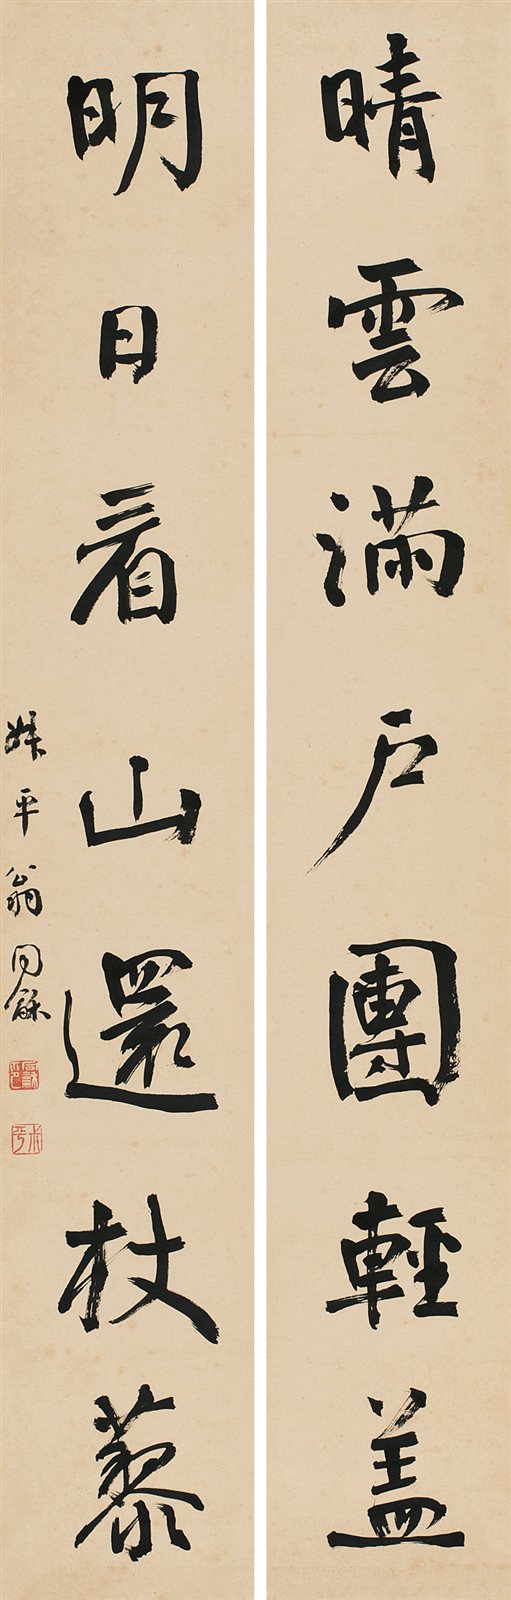 晴雲滿户團輕盖
明日看山還杖藜
叔平翁同龢